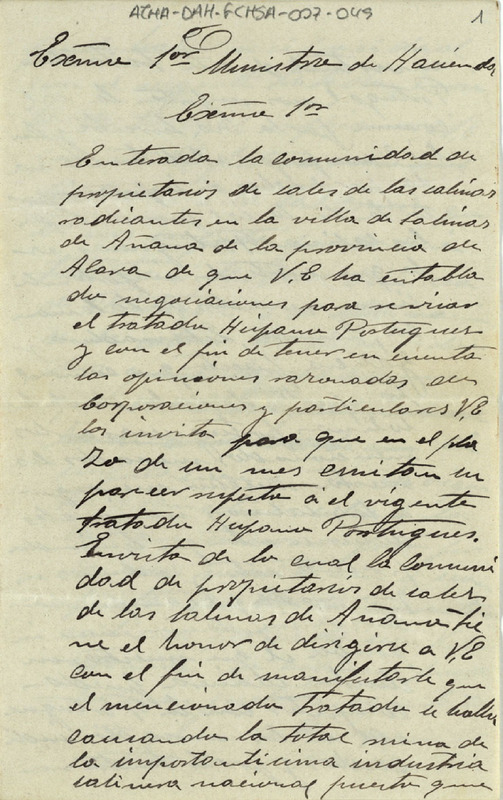 ATHA-DAH-FCHSA-007-049
1
Exmo 1or Ministro de Hacienda
Exmo 1or
Enterada la comunidad de
propietarios de sales de las salinas
radicantes en la villa de Salinas
de Añana de la provincia de
Alava de que V.E ha entabla
do negociaciones para revisar
el tratado Hispano Portugues
y con el fin de tener en cuenta
las opiniones razonadas de
Corporaciones y particulares V.E
los invita para que en el pla
zo de un mes emitan su
parecer respecto á el vigente
tratado Hispano Portugues.
En vista de lo cual la comuni
dad de propietarios de sales
de las salinas de Añana tie
ne el honor de dirigirse a V.E
con el fin de manifestarle que
el mencionado tratado se halla
causando la total ruina de
la importantisima industria
salinera nacional puesto que